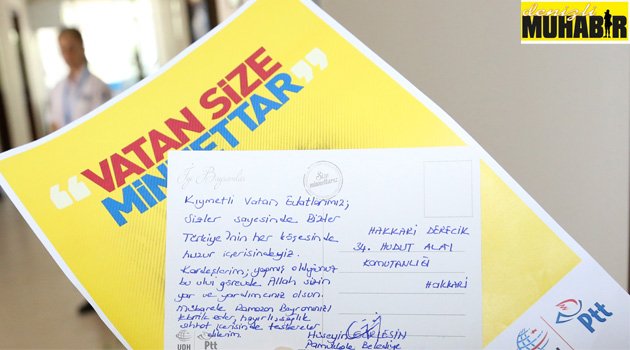 denizli
MUHABİR
"VATAN SİZE
MİNNETTAR"
İyi Bayramlar
Size
minnettarız
Kıymetli Vatan Evlatlarımız;
Sizler sayesinde Bizler
Türkiye'nin her köşesinde
huzur içerisindeyiz.
Kardeşlerim; yapmış olduğunuz
bu ulvi görevde Allah sizin
yar ve yardımcınız olsun.
Mübarek Ramazan Bayramınızı
tebrik eder, hayırlı, sağlık
sıhhat içerisinde teskereler
dilerim.
HAKKARİ DERECİK
34. HUDUT ALAY
KOMUTANLIĞI
HAKKARİ
Hüseyin GÜRLESİN
Pamukkale Belediye
UDH
Ptt
Ptt